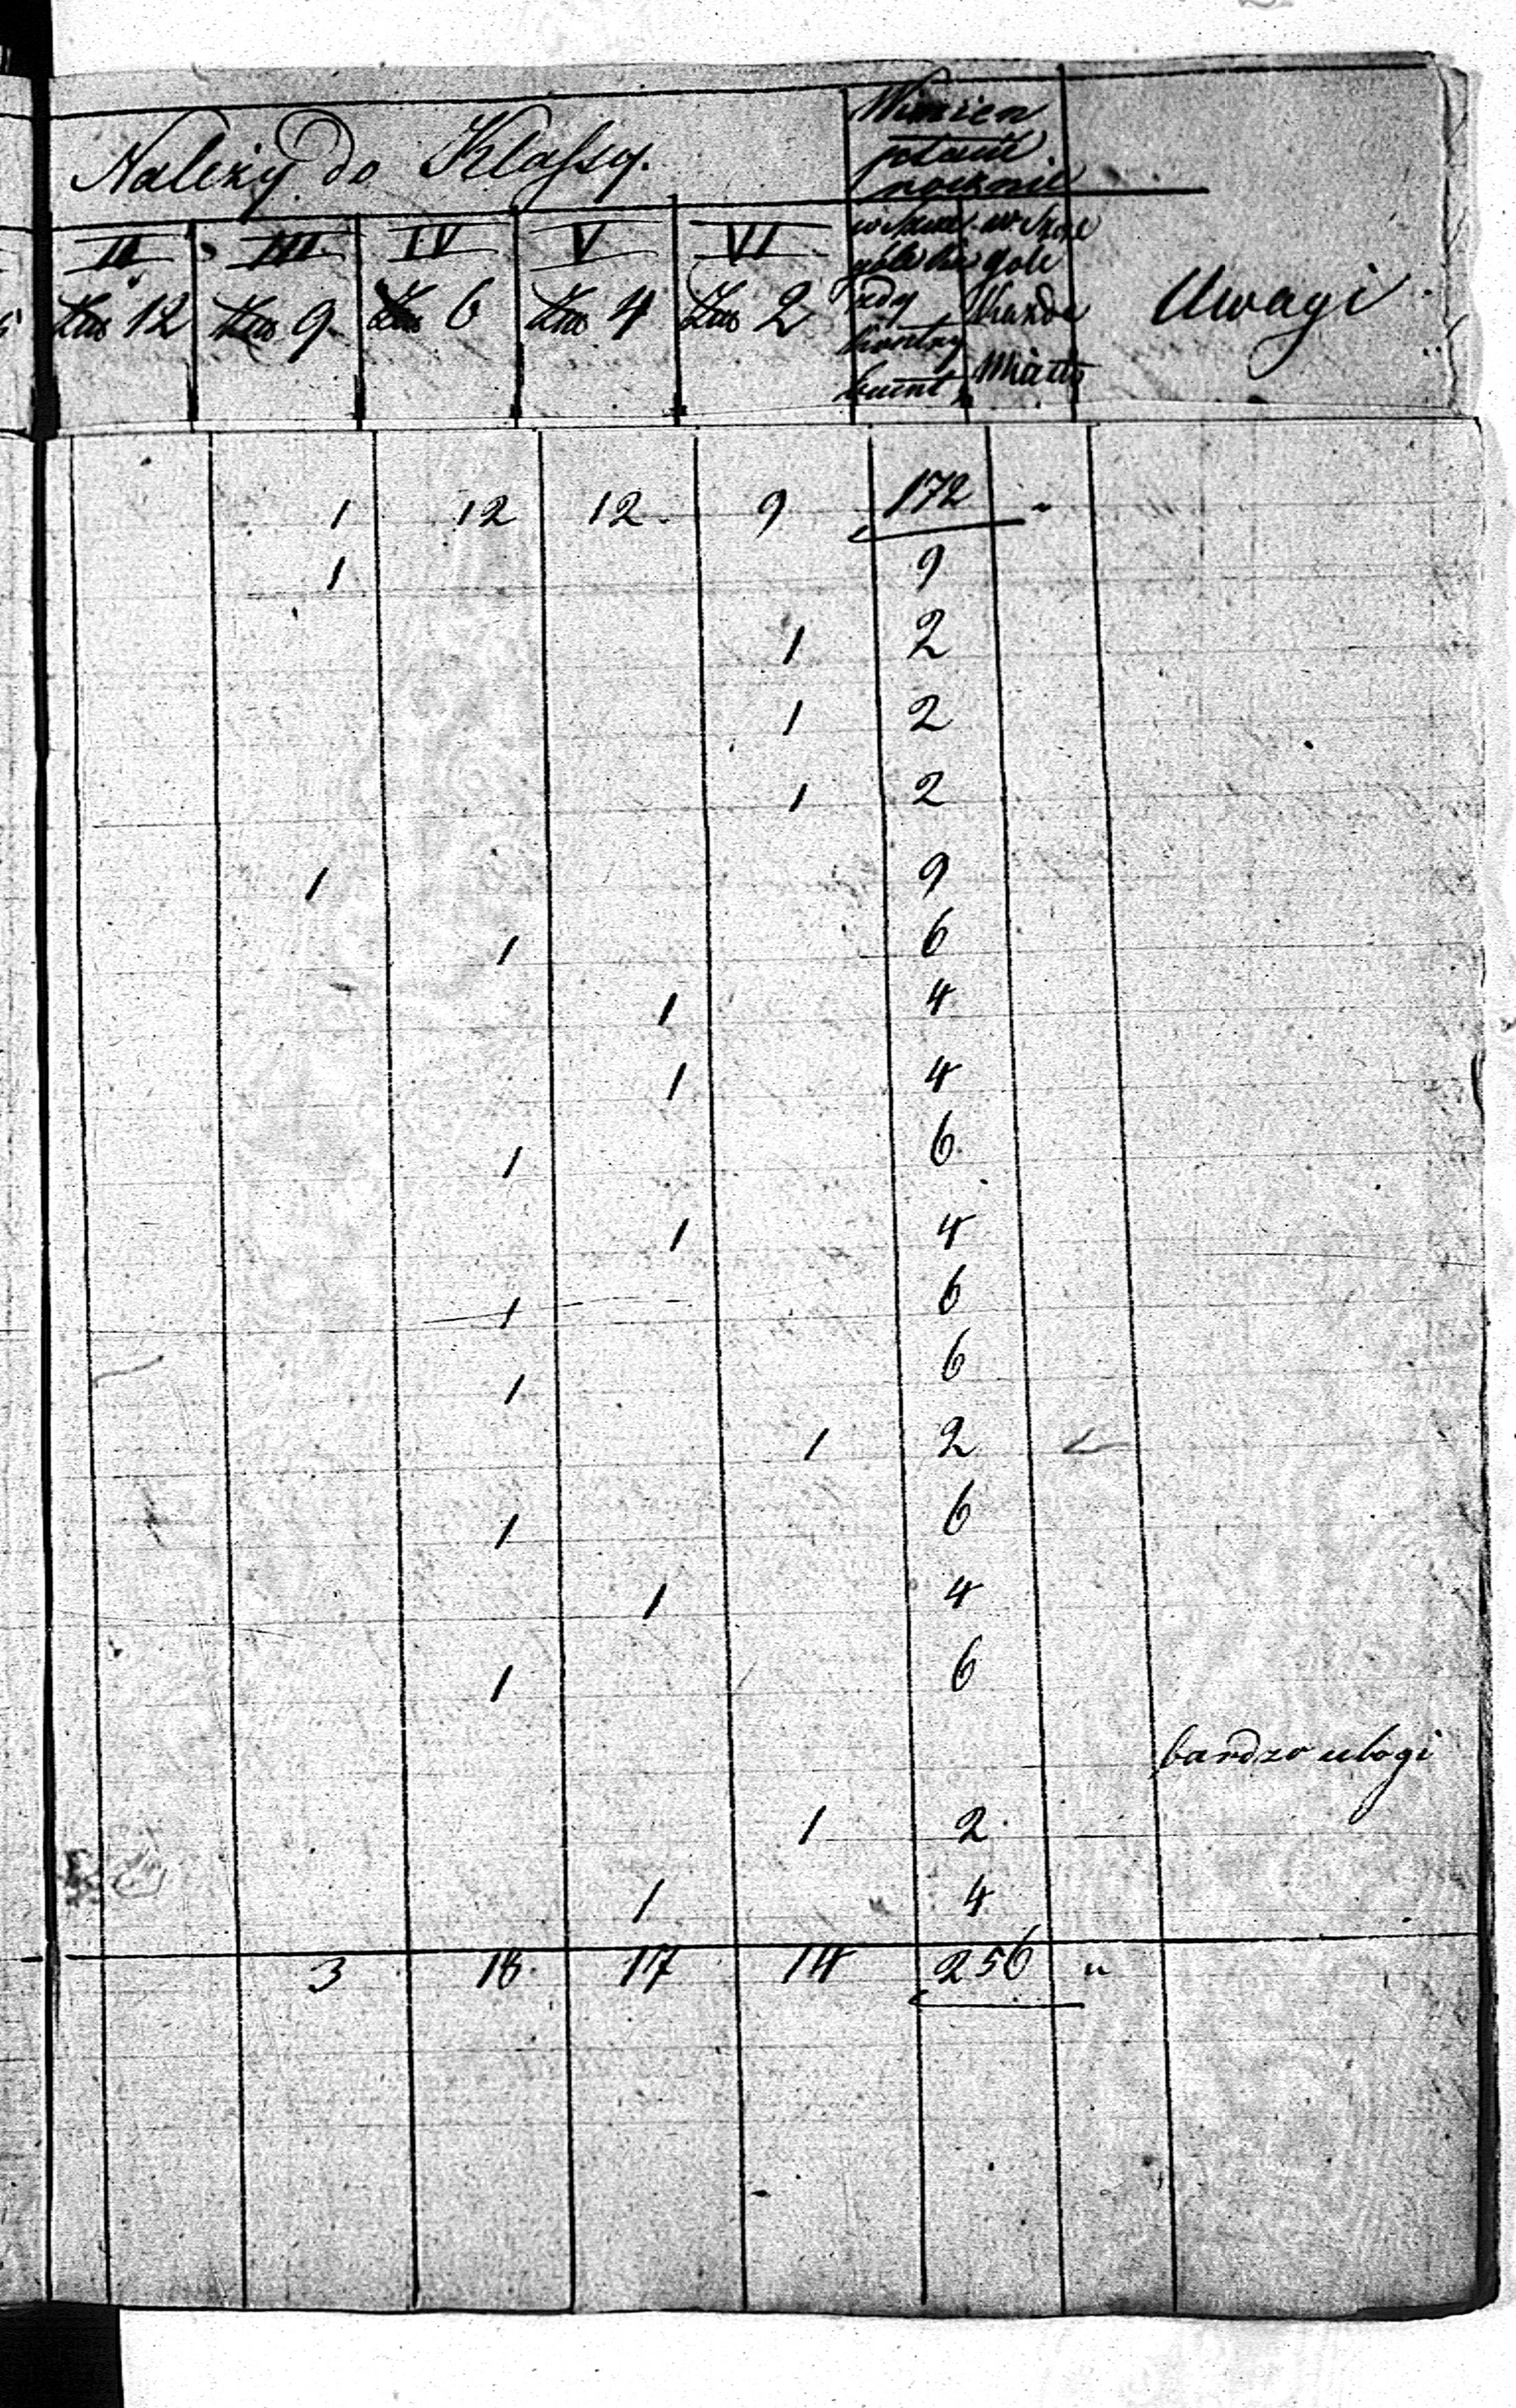 Należy do Klassy.
Winien
płacić
rocznie
II III IV V VI
12 9 6 4 2
Uwagi
1 12 12 9 172 "
1 9
1 2
1 2
1 2
1 9
1 6
1 4
1 4
1 6
1 4
1 6
1 6
1 2
1 6
1 4
1 6
bardzo ubogi
1 2
1 4
3 18 17 14 256 "